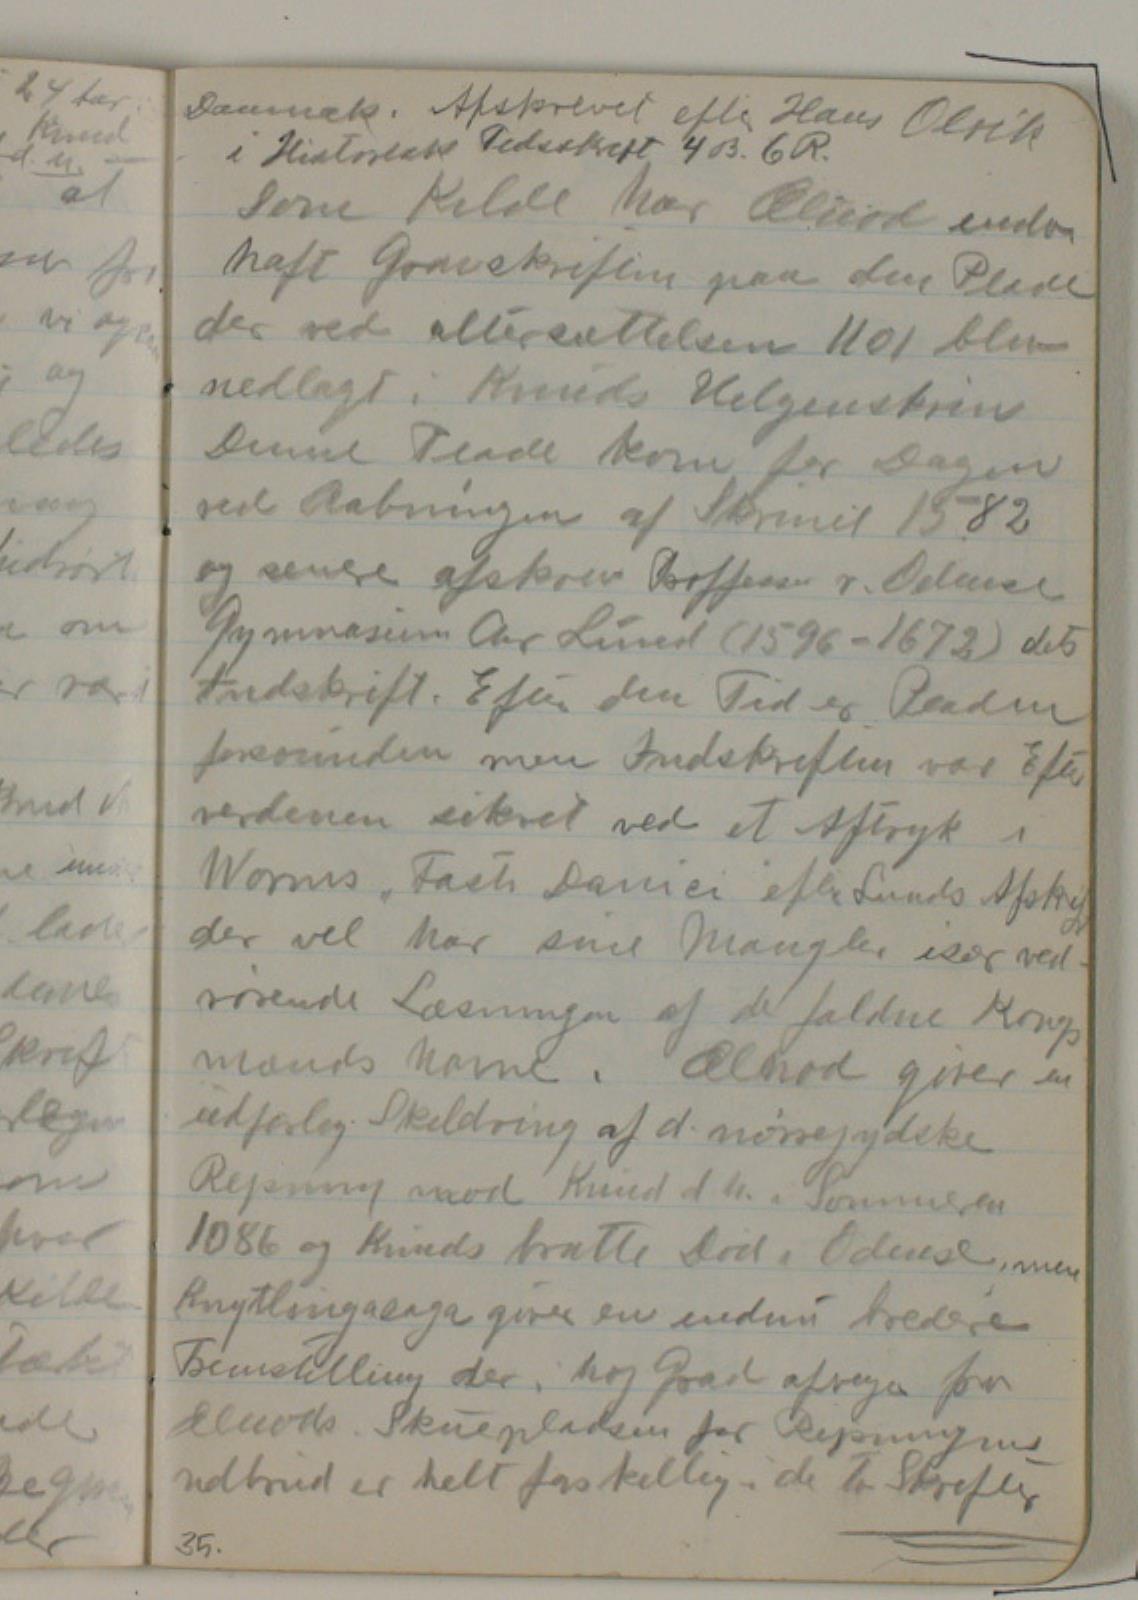 Danmark. Afskrevet efter Hans Olrik
i Historisk Tidsskrift 4 B. 6 R.
Som Kilde har Ælnod endvu
haft Gravskriften paa den Plade
der ved altersættelsen 1101 blev
nedlagt i Knuds Helgenskrin
Denne Plade kom for Dagen
ved Aabningen af Skrinet 1582
og senere afskrev Proffessor v. Odense
Gymnasium Chr Lund (1596-1672) dets
Indskrift. Efter den Tid er Pladen
forsvunden men Indskriften var Efter
verdenen sikret ved et Aftryk i
Worms "Fasti Danici efter Lunds Afskrift
der vel har sine Mangler især ved-
rørende Læsningen af de faldne Kongs
mænds Navne. Ælnod giver en
udførlig Skildring af d. nørrejydske
Rejsning mod Knud d h. i Sommeren
1086 og Knuds bratte Død i Odense, men
Knytlingasaga giver en endnu bredere
Fremstilling der i høj Grad afviger fra
Ælnods. Skuepladsen for Rejsningens
udbrud er helt forskellig i de to Skrifter
35.
24
Knud
d. h.
at
fra
vi og
og
ledes
om
Knud
lade
Skrift
som
hvor
Kilde